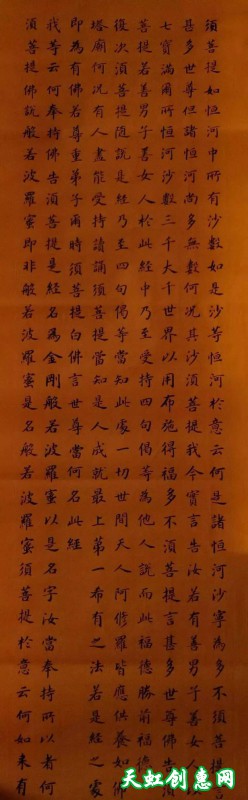 須菩提如恒河中所有沙數如是沙等恒河於意云何是諸恒河沙寧為多不須菩提言
甚多世尊但諸恒河尚多無數何況其沙須菩提我今實言告汝若有善男子善女人以
七寶滿爾所恒河沙數三千大千世界以用布施得福多不須菩提言甚多世尊佛告須
菩提若善男子善女人於此經中乃至受持四句偈等為他人說而此福德勝前福德
復次須菩提隨說是經乃至四句偈等當知此處一切世間天人阿修羅皆應供養如佛
塔廟何況有人盡能受持讀誦須菩提當知是人成就最上第一希有之法若是經之處
即為有佛若尊重弟子爾時須菩提白佛言世尊當何名此經
我等云何奉持佛告須菩提是經名為金剛般若波羅蜜以是名字汝當奉持所以者何
須菩提佛說般若波羅蜜即非般若波羅蜜是名般若波羅蜜須菩提於意云何如來有
天虹创惠网